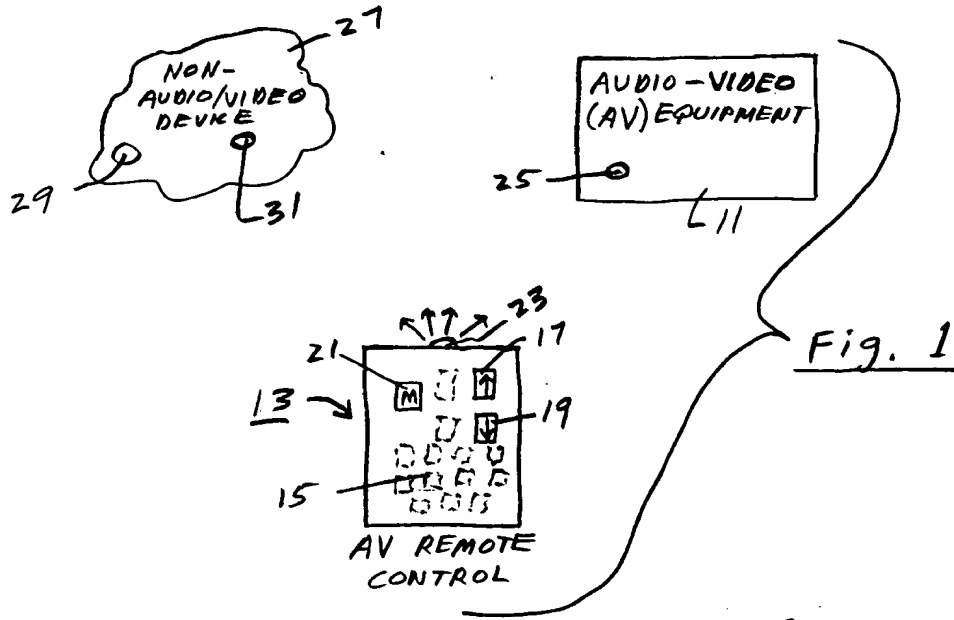 27
NON-
AUDIO/VIDEO
DEVICE
29
31
AUDIO-VIDEO
(AV) EQUIPMENT
25
11
23
17
21
M
↑
13
19
↓
15
AV REMOTE
CONTROL
Fig. 1